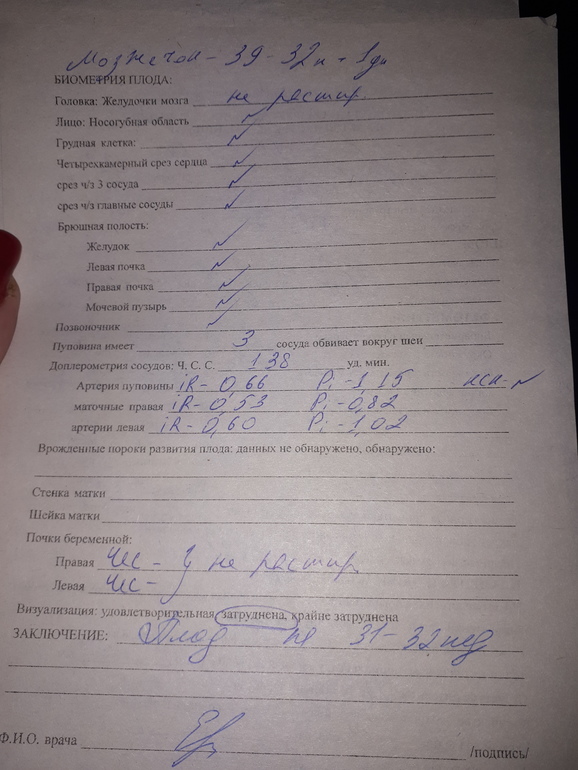 Мозжечок - 39 - 32н + 1дн
БИОМЕТРИЯ ПЛОДА:
Головка: Желудочки мозга не расшир.
Лицо: Носогубная область ✓
Грудная клетка: ✓
Четырехкамерный срез сердца ✓
срез ч/з 3 сосуда ✓
срез ч/з главные сосуды ✓
Брюшная полость:
Желудок ✓
Левая почка ✓
Правая почка ✓
Мочевой пузырь ✓
Позвоночник ✓
Пуповина имеет 3 сосуда обвивает вокруг шеи
Доплерометрия сосудов: Ч. С. С. 138 уд. мин.
Артерия пуповины iR - 0,66 Pi - 1,15
маточные правая iR - 0,53 Pi - 0,82
артерии левая iR - 0,60 Pi - 1,02
Врожденные пороки развития плода: данных не обнаружено, обнаружено:
Стенка матки
Шейка матки
Почки беременной:
Правая ЧЛС - } не расшир.
Левая ЧЛС -
Визуализация: удовлетворительная, затруднена, крайне затруднена
ЗАКЛЮЧЕНИЕ: Плод 31-32 нед
Ф.И.О. врача /подпись/